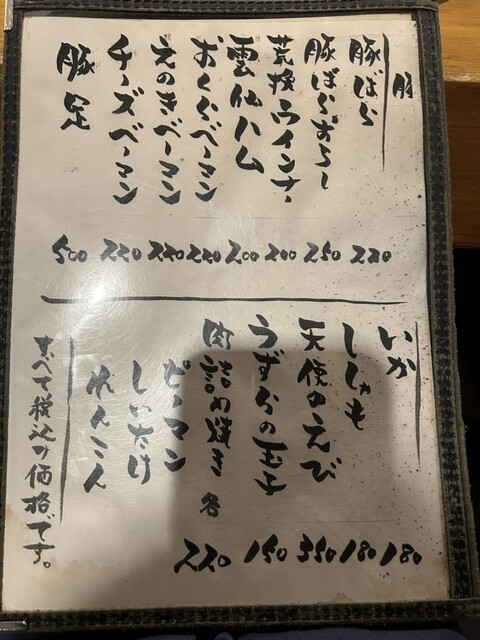 豚
豚ばら 220
豚ばらおろし 250
荒挽ウインナー 200
雲仙ハム 200
おくらベーコン 220
えのきベーコン 220
チーズベーコン 220
豚足 500
いか 180
ししゃも 180
天使のえび 350
うずらの玉子 150
肉詰め焼き 各 220
ピーマン
しいたけ
れんこん
すべて税込の価格です。